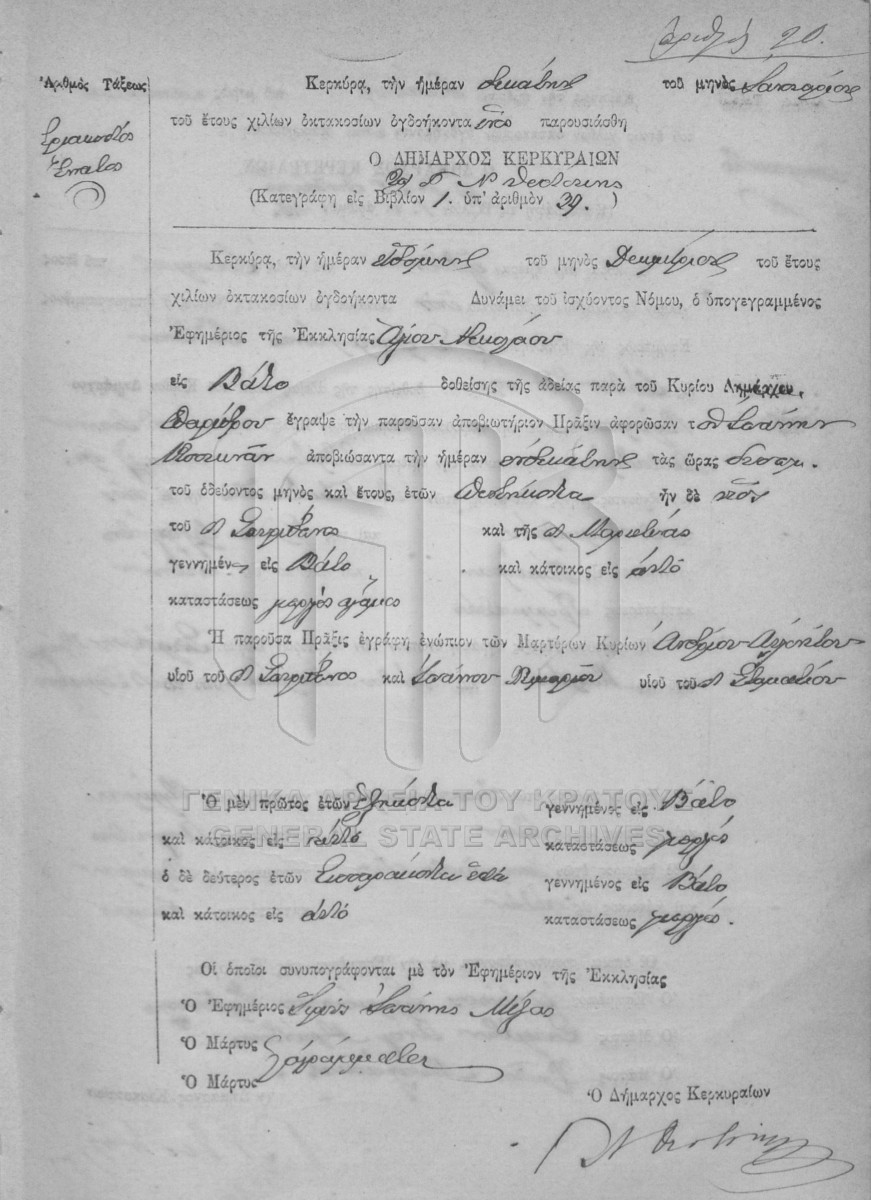 20.
Ἀριθμὸς Τάξεως
Κερκύρᾳ, τὴν ἡμέραν δεκάτην τοῦ μηνὸς Ἰανουαρίου
τοῦ ἔτους χιλίων ὀκτακοσίων ὀγδοήκοντα ἑνὸς παρουσιάσθη
Τριακοστὸς
Ἔννατος
Ο ΔΗΜΑΡΧΟΣ ΚΕΡΚΥΡΑΙΩΝ
(Κατεγράφη εἰς Βιβλίον 1. ὑπ' ἀριθμὸν 39.)
Κερκύρᾳ, τὴν ἡμέραν τοῦ μηνὸς Δεκεμβρίου τοῦ ἔτους
χιλίων ὀκτακοσίων ὀγδοήκοντα Δυνάμει τοῦ ἰσχύοντος Νόμου, ὁ ὑπογεγραμμένος
Ἐφημέριος τῆς Ἐκκλησίας Ἁγίου Νικολάου
εἰς Βάτο δοθείσης τῆς ἀδείας παρὰ τοῦ Κυρίου Δημάρχου,
Παρέδρου ἔγραψε τὴν παροῦσαν ἀποβιωτήριον Πρᾶξιν ἀφορῶσαν τὸν Ἰωάννην
ἀποβιώσαντα τὴν ἡμέραν ἑνδεκάτην τὰς ὥρας
τοῦ ὁδεύοντος μηνὸς καὶ ἔτους, ἐτῶν ἦν δὲ υἱὸς
τοῦ π Σπυρίδωνος καὶ τῆς π
γεννημέν εἰς Βάτο καὶ κάτοικος εἰς αὐτό
καταστάσεως γεωργός ἄγαμος
Ἡ παροῦσα Πρᾶξις ἐγράφη ἐνώπιον τῶν Μαρτύρων Κυρίων Ἀντωνίου
υἱοῦ τοῦ π Σπυρίδωνος καὶ Ἰωάννου υἱοῦ τοῦ π Σταματίου
Ὁ μὲν πρῶτος ἐτῶν ἑξήκοντα γεννημένος εἰς Βάτο
καὶ κάτοικος εἰς αὐτό καταστάσεως γεωργός
ὁ δὲ δεύτερος ἐτῶν τεσσαράκοντα ἑπτά γεννημένος εἰς Βάτο
καὶ κάτοικος εἰς αὐτό καταστάσεως γεωργός.
Οἱ ὁποῖοι συνυπογράφονται μὲ τὸν Ἐφημέριον τῆς Ἐκκλησίας
Ὁ Ἐφημέριος Ἱερεὺς Ἰωάννης Μέξας
Ὁ Μάρτυς
ἀγράμματοι
Ὁ Μάρτυς
Ὁ Δήμαρχος Κερκυραίων
ΓΕΝΙΚΑ ΑΡΧΕΙΑ ΤΟΥ ΚΡΑΤΟΥΣ
GENERAL STATE ARCHIVES